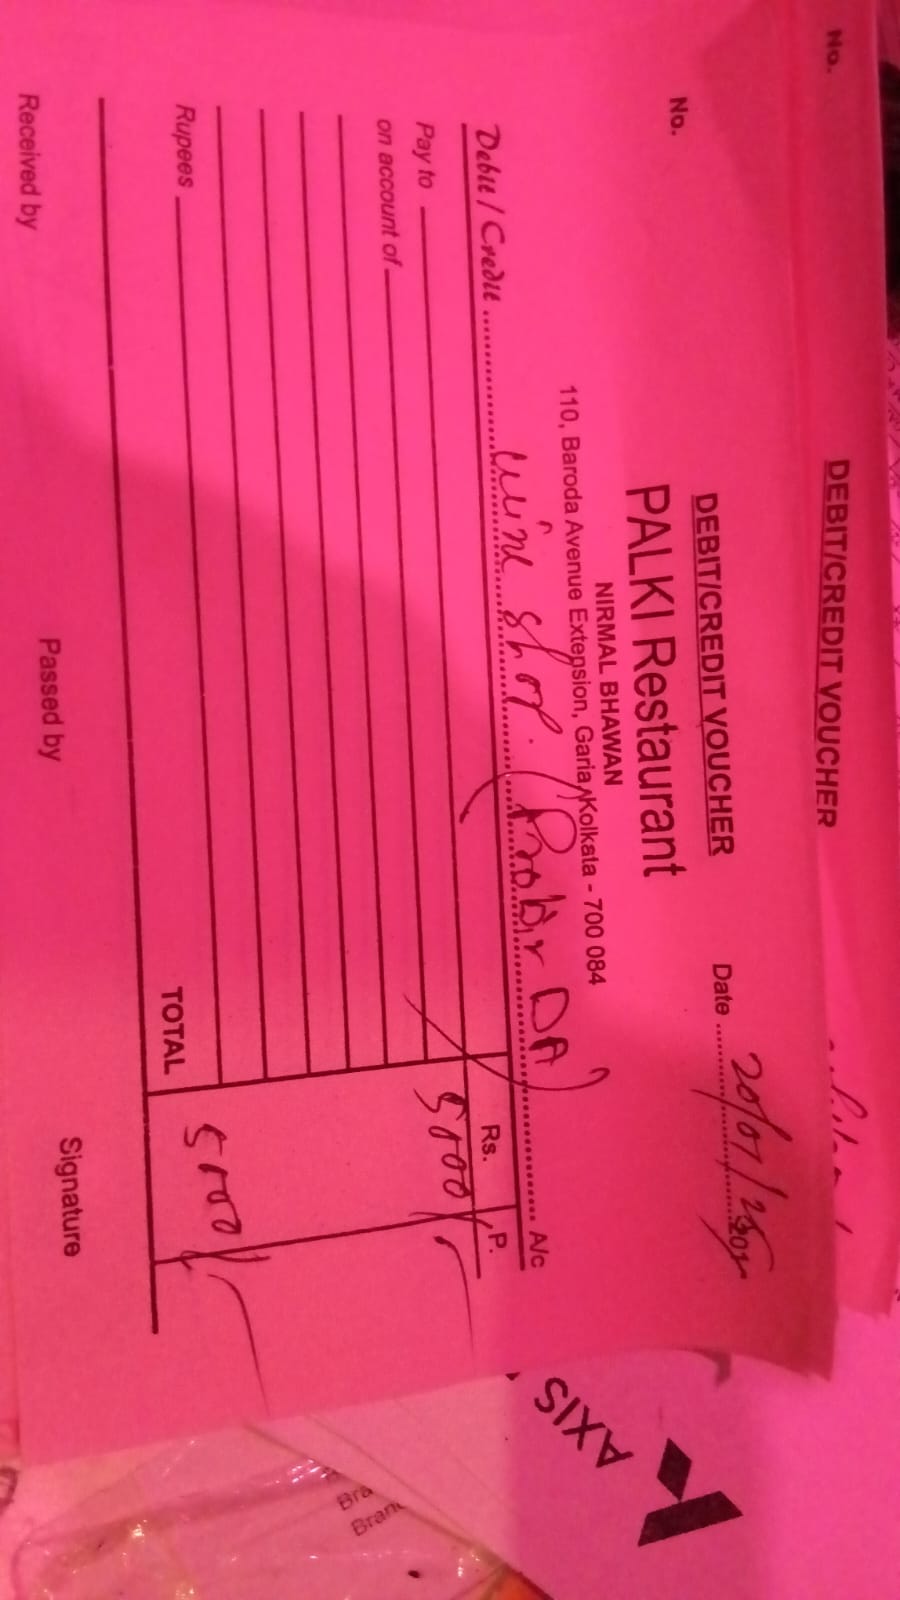 No.
DEBIT/CREDIT VOUCHER
DEBIT/CREDIT VOUCHER
No.
Date 20/07/25
PALKI Restaurant
NIRMAL BHAWAN
110, Baroda Avenue Extension, Garia, Kolkata - 700 084
Debit / Credit Wine Shop. (Probir DA) A/c
Rs. P.
Pay to 5000/-
on account of
TOTAL 5000/-
Rupees
Received by Passed by Signature
AXIS
Bra
Branc